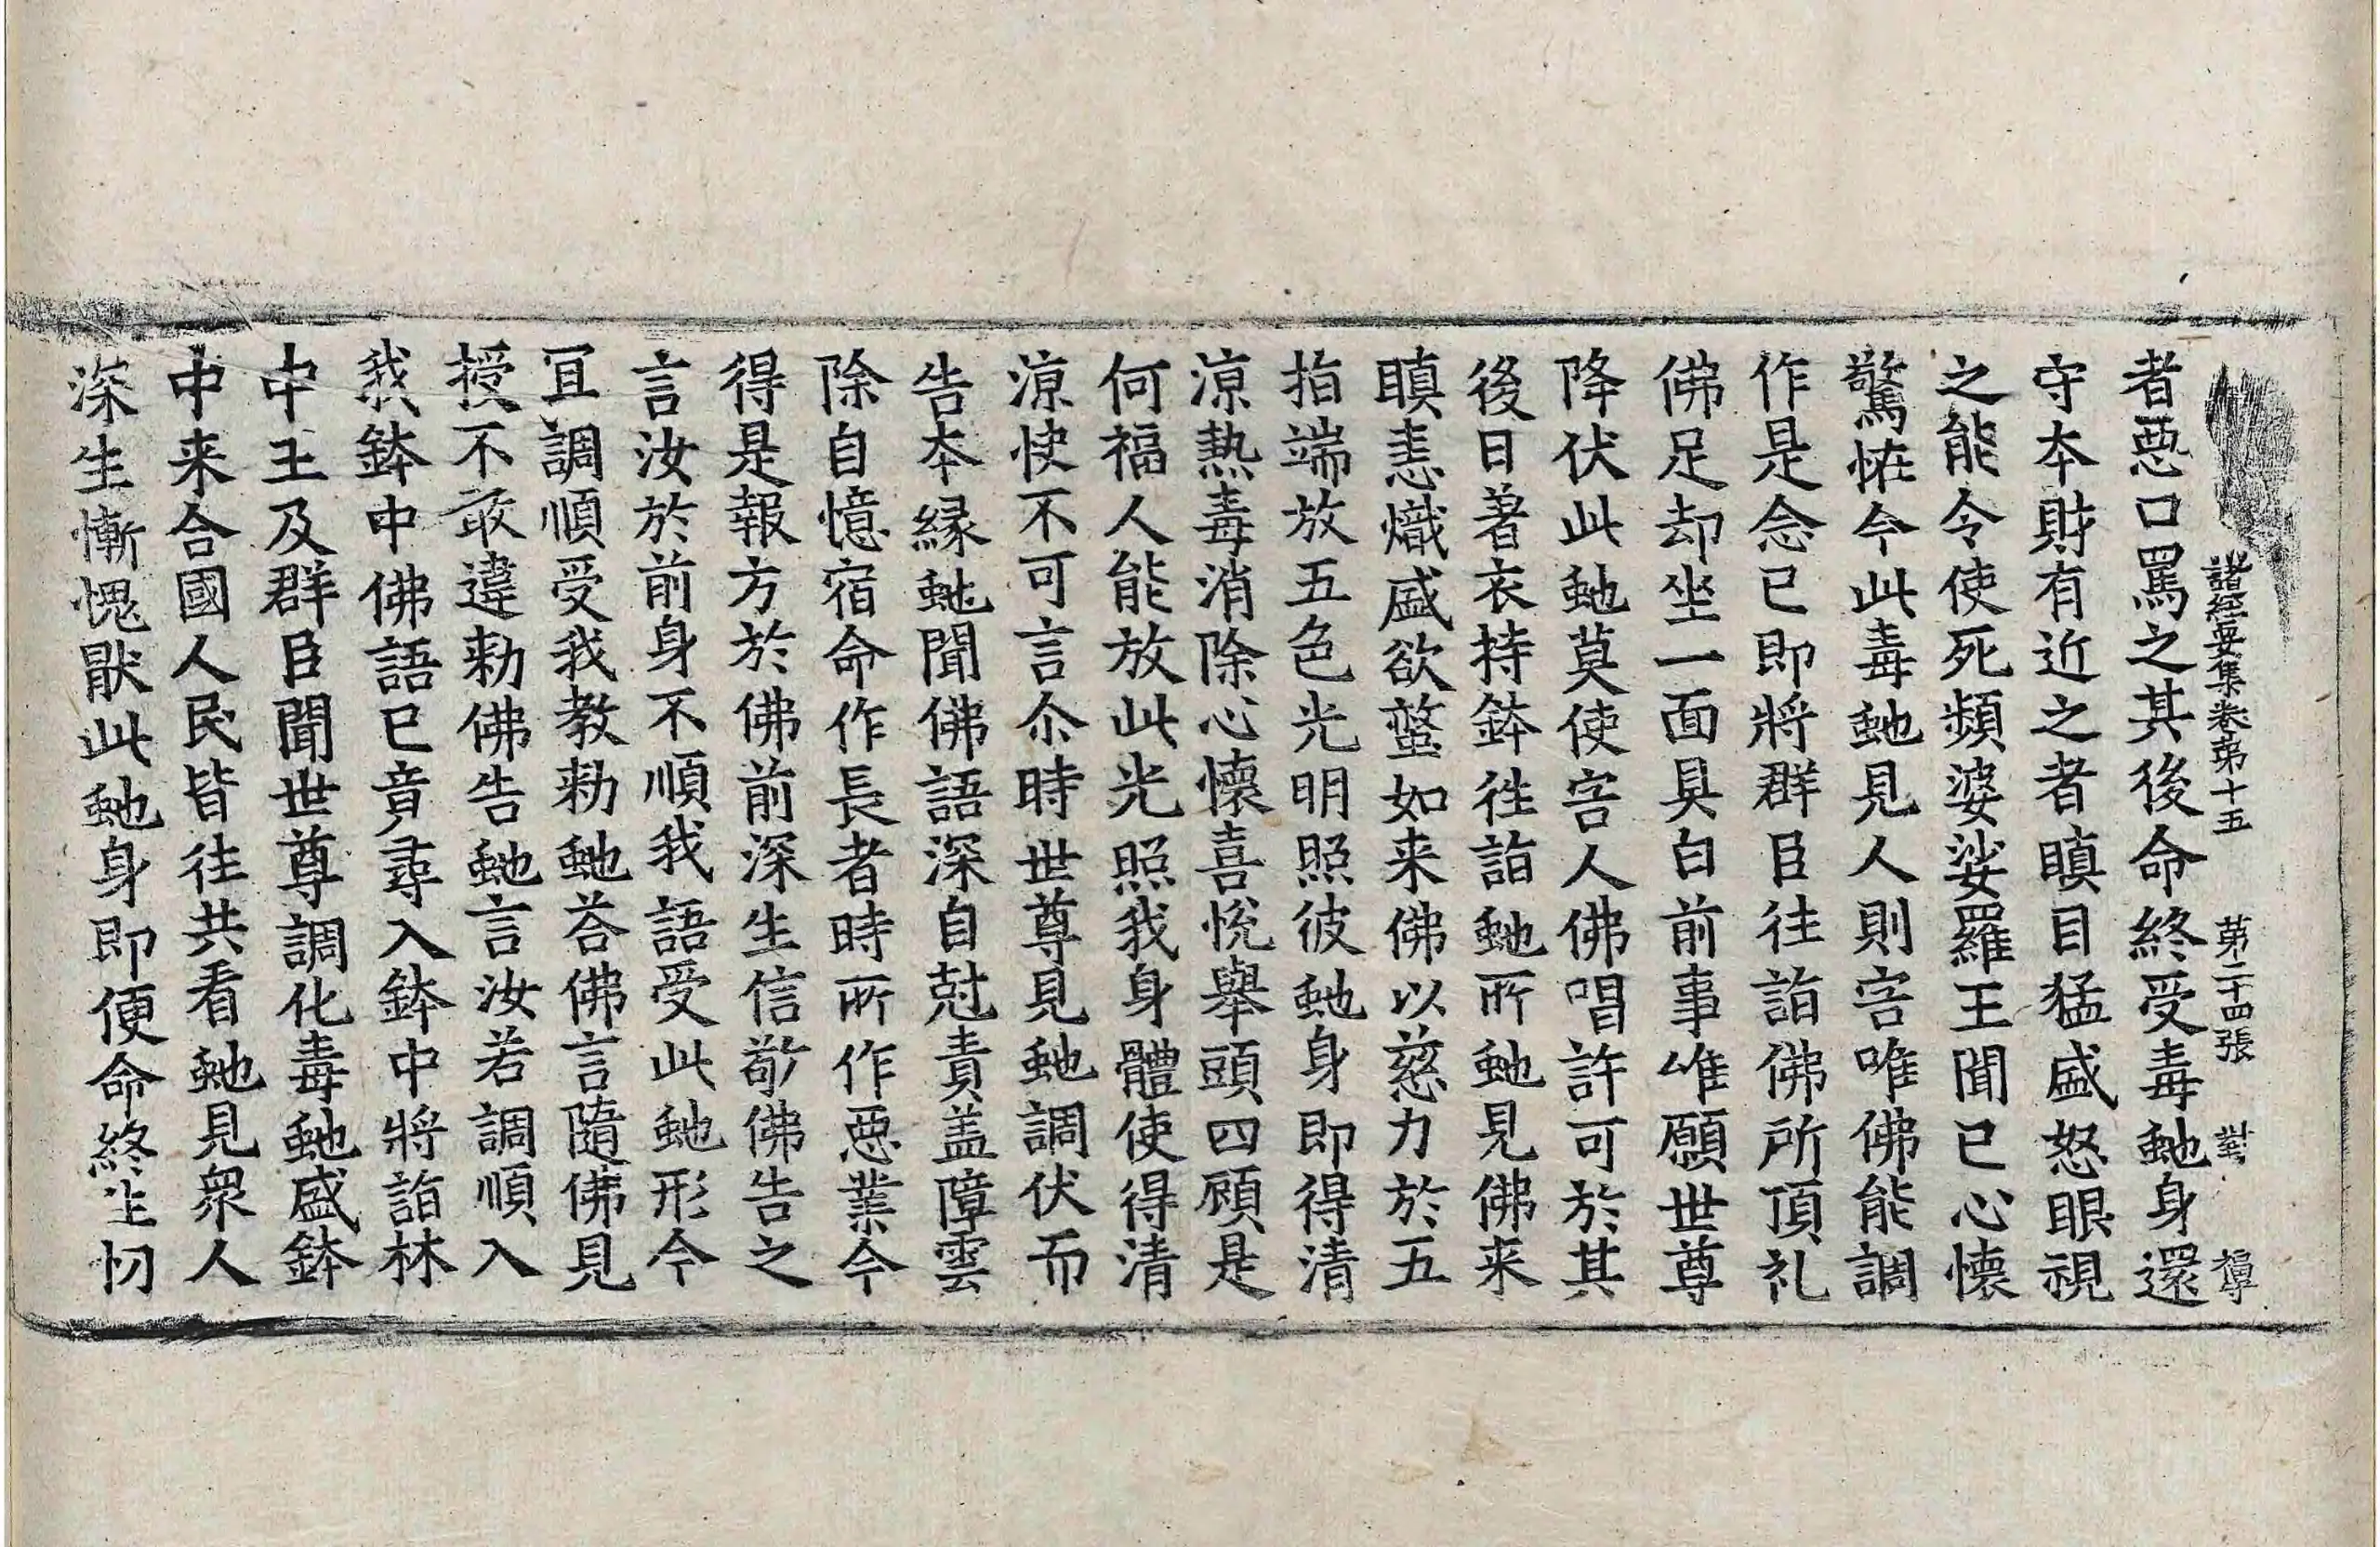 諸經要集卷第十五 第二十四張 對
者惡口罵之其後命終受毒虵身還
守本財有近之者瞋目猛盛怒眼視
之能令使死頻婆娑羅王聞已心懷
驚恠今此毒虵見人則害唯佛能調
作是念已即將群臣往詣佛所頂礼
佛足却坐一面具白前事唯願世尊
降伏此虵莫使害人佛唱許可於其
後日著衣持鉢往詣虵所虵見佛来
瞋恚熾盛欲螫如来佛以慈力於五
指端放五色光明照彼虵身即得清
涼熱毒消除心懷喜悅舉頭四顧是
何福人能放此光照我身體使得清
涼快不可言尒時世尊見虵調伏而
告本緣虵聞佛語深自尅責盖障雲
除自憶宿命作長者時所作惡業今
得是報方於佛前深生信敬佛告之
言汝於前身不順我語受此虵形今
冝調順受我教勑虵荅佛言隨佛見
授不敢違勑佛告虵言汝若調順入
我鉢中佛語已竟尋入鉢中將詣林
中王及群臣聞世尊調化毒虵盛鉢
中来合國人民皆往共看虵見衆人
深生慚愧厭此虵身即便命終生忉